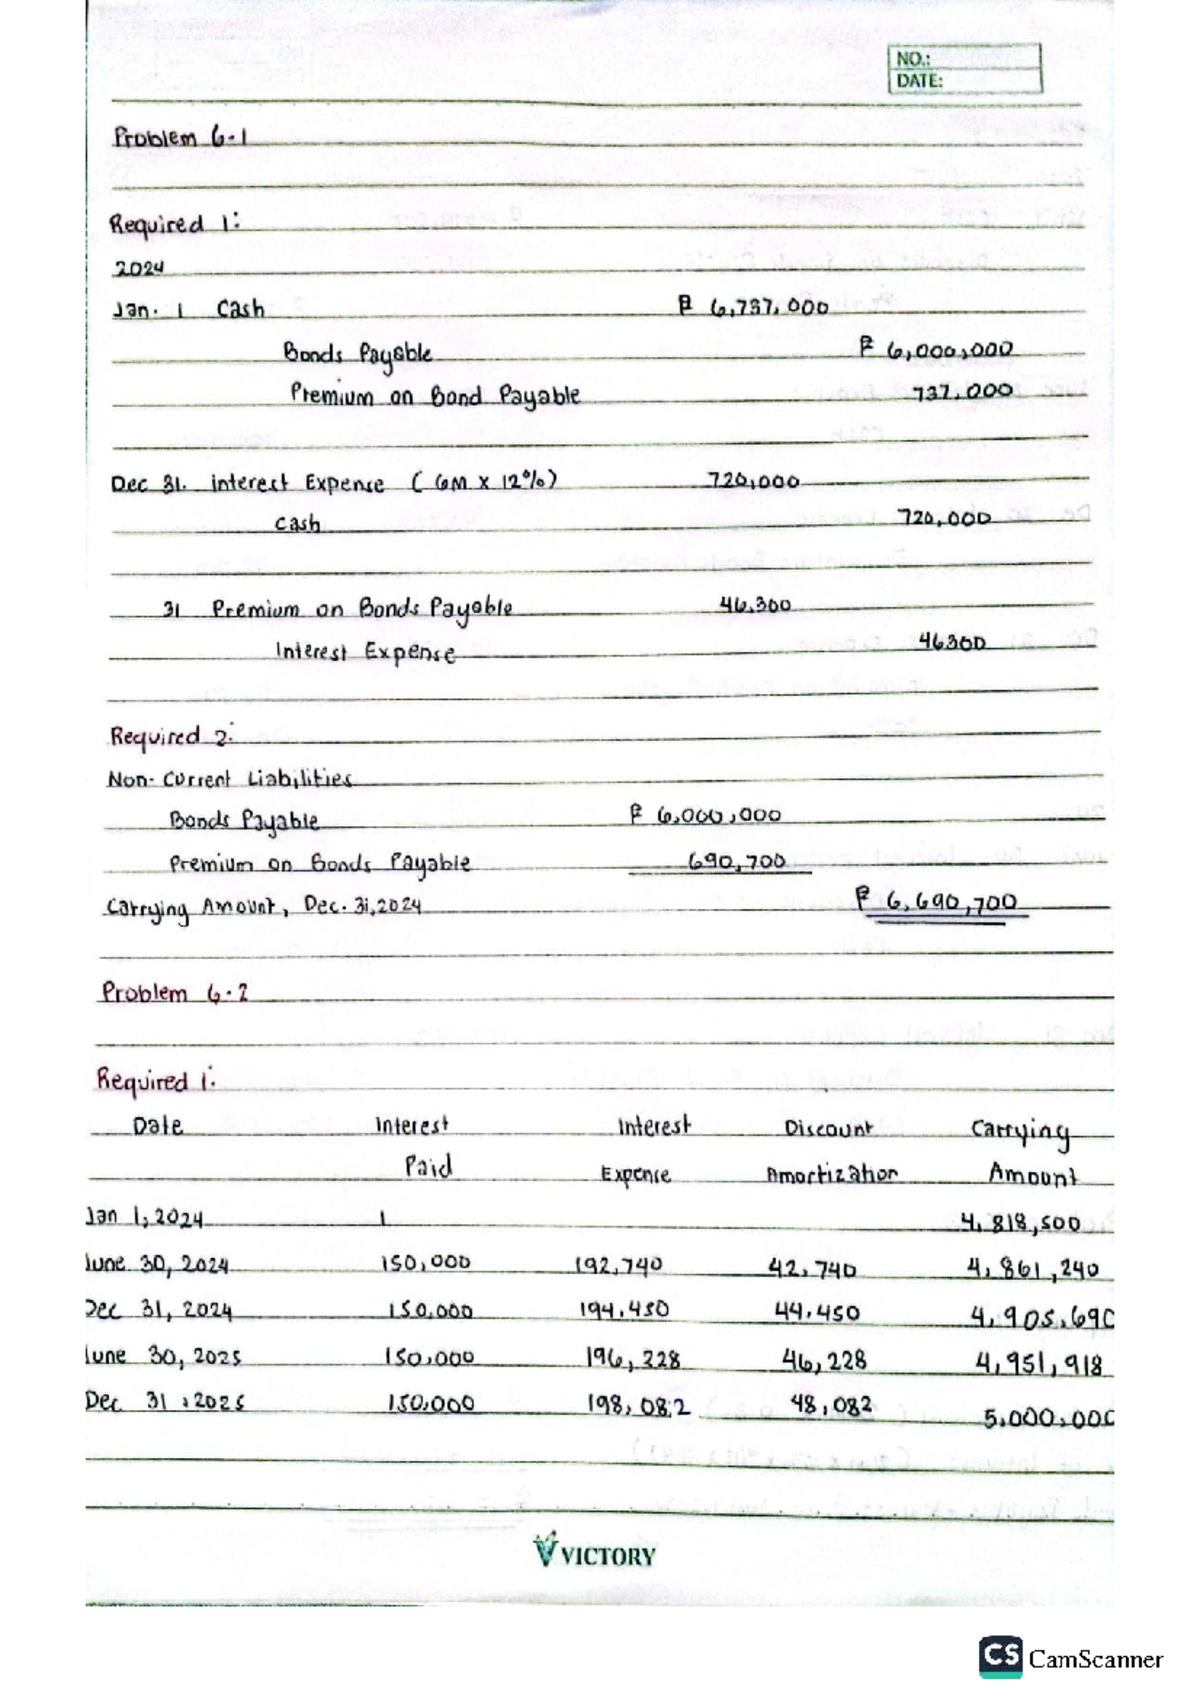 NO.:
DATE:
Problem 6-1
Required 1:
2024
Jan. 1 Cash ₱ 6,737,000
Bonds Payable ₱ 6,000,000
Premium on Bond Payable 737,000
Dec 31. interest Expense ( 6M x 12%) 720,000
Cash 720,000
31 Premium on Bonds Payable 46,300
Interest Expense 46300
Required 2:
Non-Current Liabilities
Bonds Payable ₱ 6,000,000
Premium on Bonds Payable 690,700
Carrying Amount, Dec. 31,2024 ₱ 6,690,700
Problem 6-2
Required 1:
Date Interest Interest Discount Carrying
Paid Expense Amortization Amount
Jan 1, 2024 4,818,500
June 30, 2024 150,000 192,740 42,740 4,861,240
Dec 31, 2024 150,000 194,450 44,450 4,905,690
June 30, 2025 150,000 196,228 46,228 4,951,918
Dec 31, 2025 150,000 198,082 48,082 5,000,000
VICTORY
CS CamScanner